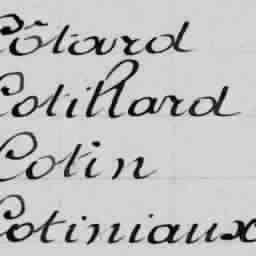 Côtard
Cotillard
Cotin
Cotiniaux